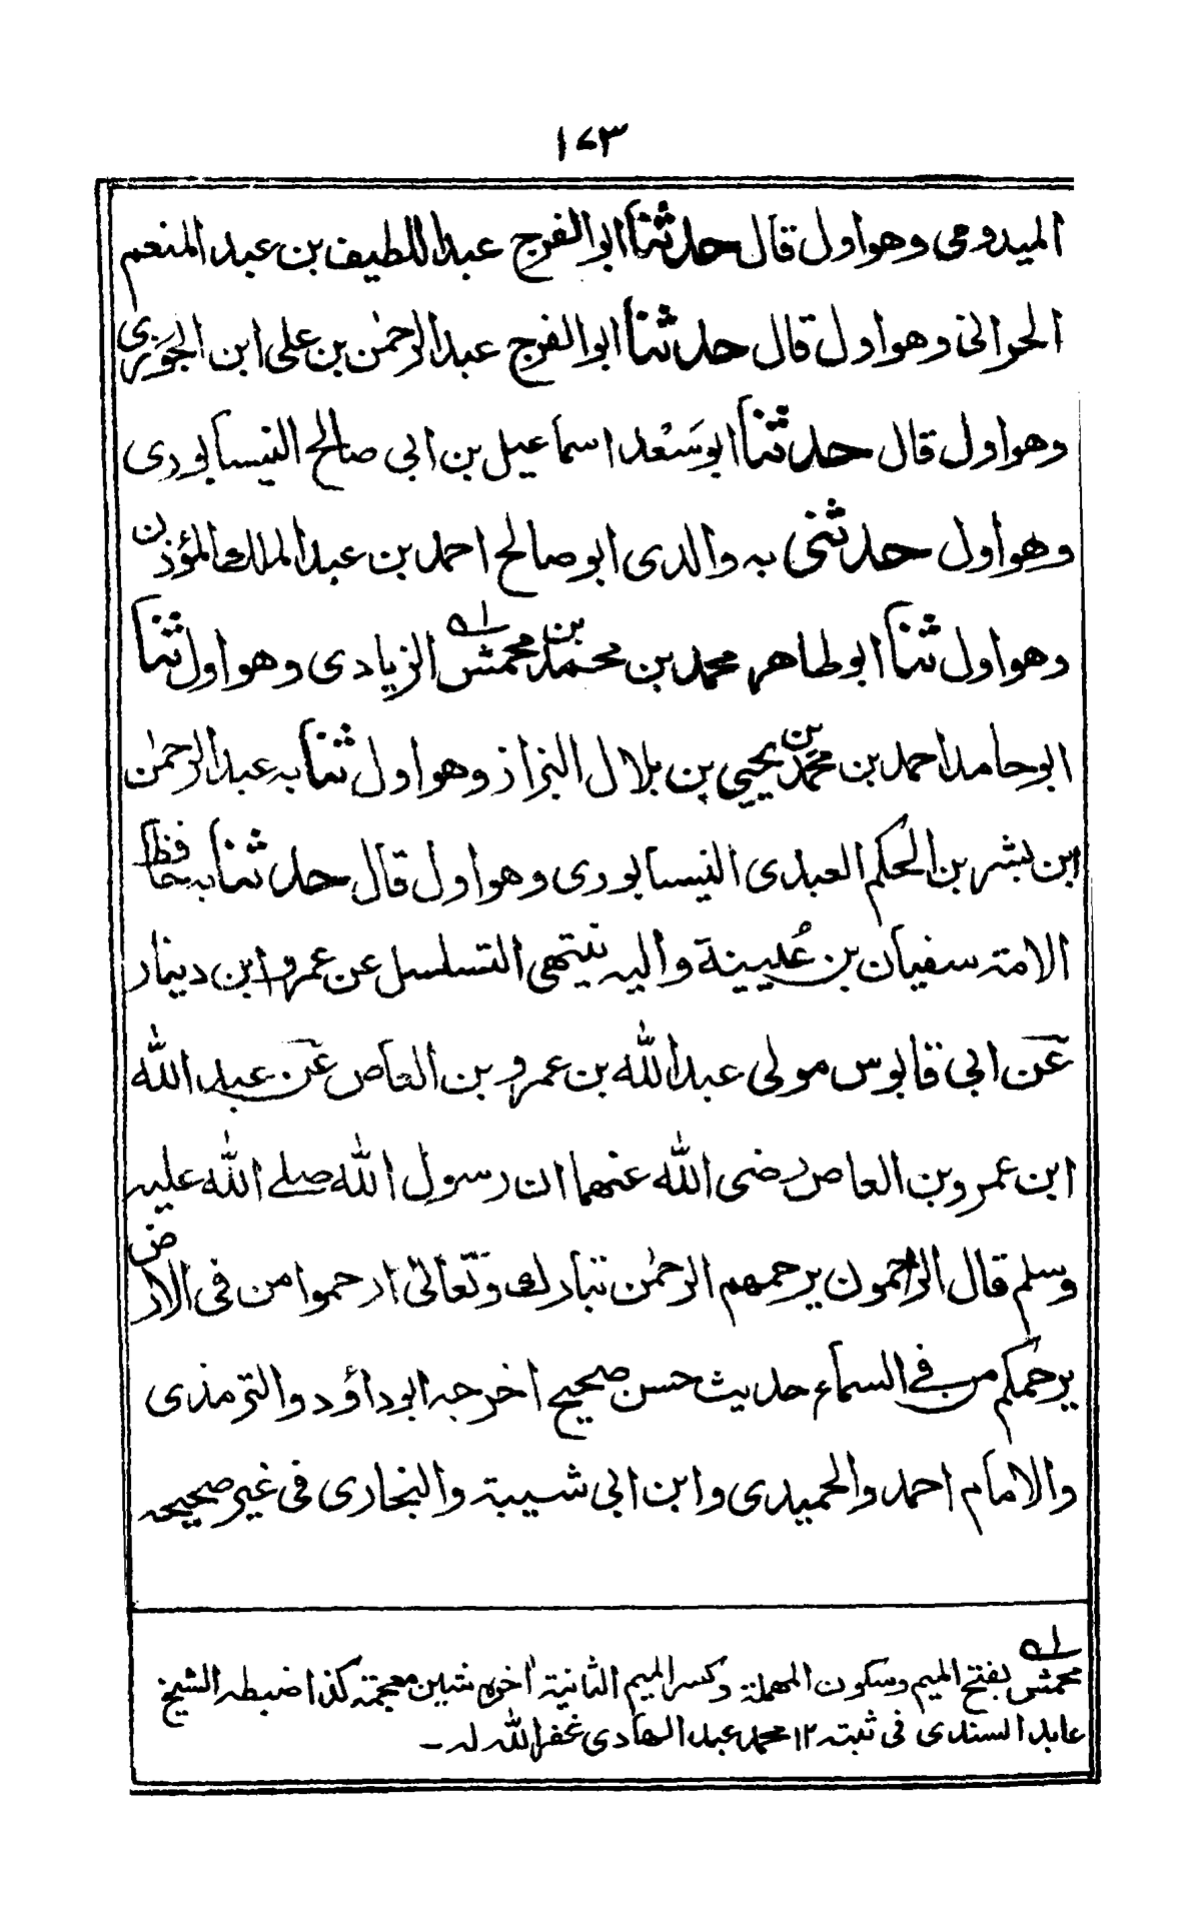 ١٧٣
الميدومى وهو اول قال حدثنا ابو الفرج عبد اللطيف بن عبد المنعم
الحرانى وهو اول قال حدثنا ابو الفرج عبد الرحمٰن بن على ابن الجوزى
وهو اول قال حدثنا ابو سَعْد اسماعيل بن ابى صالح النيسابورى
وهو اول حدثنى به والدى ابو صالح احمد بن عبد الملك المؤذن
وهو اول ثنا ابو طاهر محمد بن محمد بن محمش الزيادى وهو اول ثنا
ابو حامد احمد بن محمد بن يحيى بن بلال البزاز وهو اول ثنا به عبد الرحمٰن
ابن بشر بن الحكم العبدى النيسابورى وهو اول قال حدثنا به حافظ
الامة سفيان بن عُيينة واليه ينتهى التسلسل عن عمرو ابن دينار
عَن ابى قابوس مولى عبد الله بن عمرو بن العاص عَن عبد الله
ابن عمرو بن العاص رضى الله عنهما ان رسول الله صلے الله عليه
وسلم قال الراحمون يرحمهم الرحمٰن تبارك وتعالىٰ ارحموا من فى الارض
يرحمكم من فے السماء حديث حسن صحيح اخرجه ابو داؤد والترمذى
والامام احمد والحميدى وابن ابى شيبة والبخارى فى غير صحيحه
لـه
محمش بفتح الميم وسكون المهملة وكسر الميم الثانية اخره شين معجمة كذا ضبطه الشيخ
عابد السندى فى ثبته ١٢ محمد عبد الهادى غفر الله له ـ